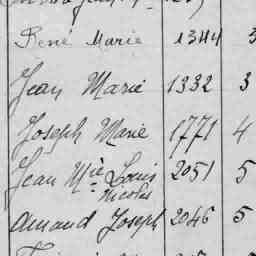 René Marie 1344 3
Jean Marie 1332 3
Joseph Marie 1771 4
Jean Mie Louis 2051 5
Nicolas
Amand Joseph 2046 5